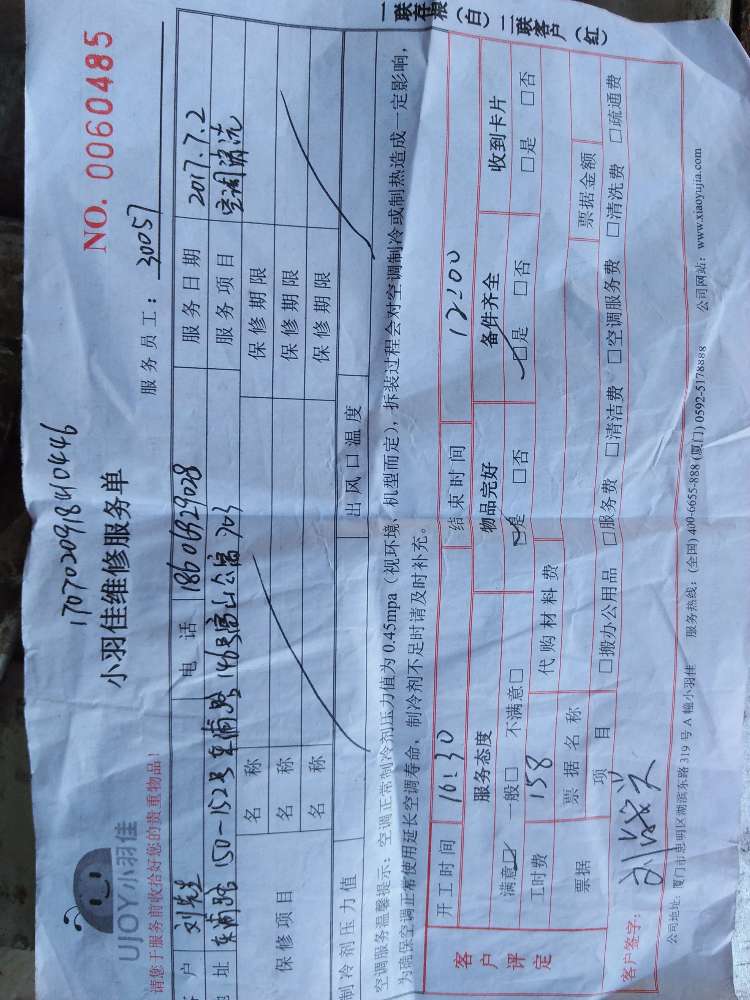 一联存根（白）二联客户（红）
NO. 0060485
1707020918410446
UJOY小羽佳
小羽佳维修服务单
服务员工：30057
请您于服务前收拾好您的贵重物品！
客户 刘先生 电话 18606929028 服务日期 2017.7.2
地址 东浦路150-152号东浦路146号富山公寓703 服务项目 空调清洗
保修项目 名称 保修期限
名称 保修期限
名称 保修期限
制冷剂压力值 出风口温度
空调服务温馨提示：空调正常制冷剂压力值为0.45mpa（视环境、机型而定），拆装过程会对空调制冷或制热造成一定影响，
为确保空调正常使用延长空调寿命，制冷剂不足时请及时补充。
客户评定 开工时间 10:30 结束时间 12:00
服务态度 物品完好 备件齐全 收到卡片
满意☑ 一般□ 不满意□ ☑是 □否 ☑是 □否 □是 □否
工时费 158 代购材料费
票据 票据名称 票据金额
项目 □搬办公用品 □服务费 □清洁费 □空调服务费 □清洗费 □疏通费
客户签字：
公司地址：厦门市思明区湖滨东路319号A幢小羽佳 服务热线：(全国) 400-6655-888 (厦门) 0592-5178888 公司网站：www.xiaoyujia.com